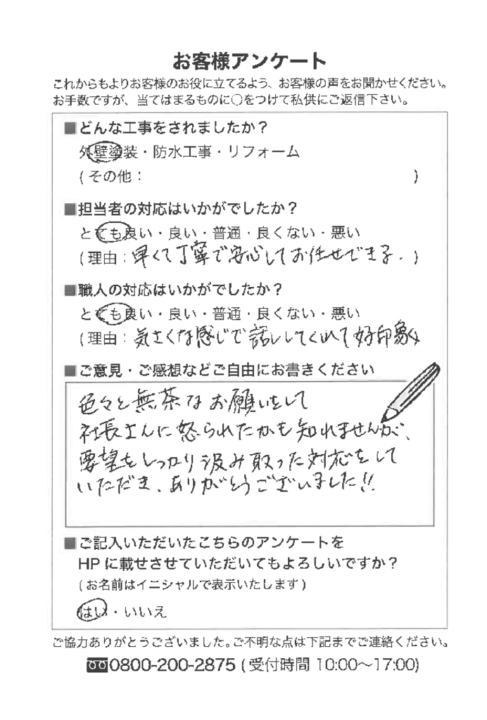 お客様アンケート
これからもよりお客様のお役に立てるよう、お客様の声をお聞かせください。
お手数ですが、当てはまるものに○をつけて私供にご返信下さい。
■どんな工事をされましたか？
外壁塗装・防水工事・リフォーム
(その他： )
■担当者の対応はいかがでしたか？
とても良い・良い・普通・良くない・悪い
(理由：早くて丁寧で安心してお任せできる。)
■職人の対応はいかがでしたか？
とても良い・良い・普通・良くない・悪い
(理由：気さくな感じで話ししてくれて好印象)
■ご意見・ご感想などご自由にお書きください
色々と無茶なお願いをして
社長さんに怒られたかも知れませんが、
要望をしっかり汲み取った対応をして
いただき、ありがとうございました!!
■ご記入いただいたこちらのアンケートを
HPに載せさせていただいてもよろしいですか？
(お名前はイニシャルで表示いたします)
はい・いいえ
ご協力ありがとうございました。ご不明な点は下記までご連絡ください。
0800-200-2875 (受付時間 10:00〜17:00)